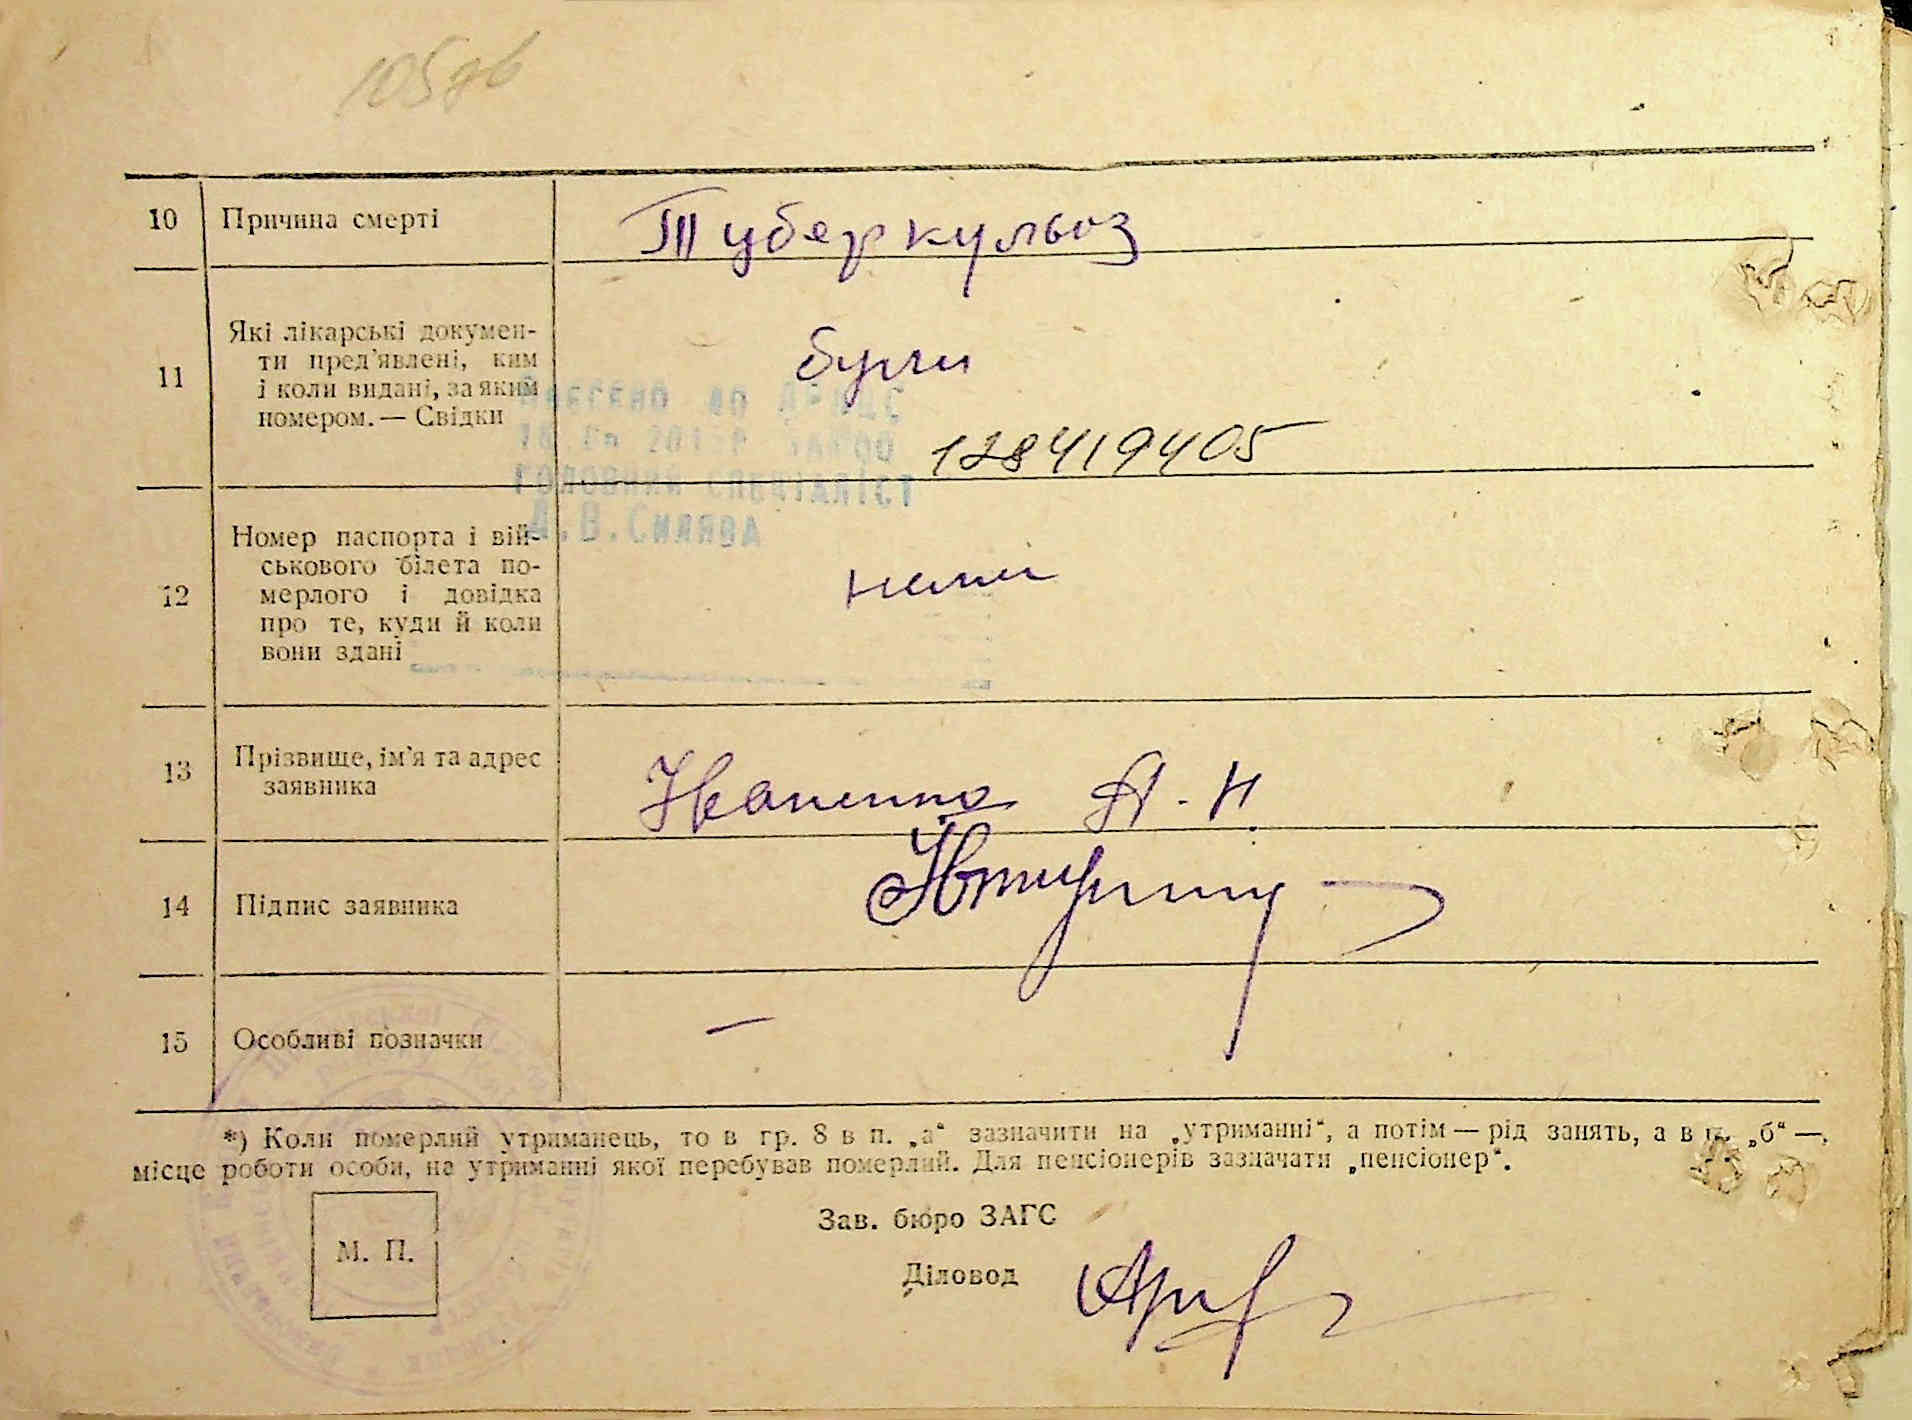 105 зв
10 Причина смерті Туберкульоз
11 Які лікарські докумен-
ти пред'явлені, ким
і коли видані, за яким
номером. — Свідки
були
128419405
Внесено до ДРАЦС
Головний спеціаліст
12 Номер паспорта і вій-
ськового білета по-
мерлого і довідка
про те, куди й коли
вони здані
нема
13 Прізвище, ім'я та адрес
заявника
Иваненко А. Н.
14 Підпис заявника
15 Особливі позначки —
*) Коли померлий утриманець, то в гр. 8 в п. „а“ зазначити на „утриманні“, а потім — рід занять, а в п. „б“ —
місце роботи особи, на утриманні якої перебував померлий. Для пенсіонерів зазначати „пенсіонер“.
М. П.
Зав. бюро ЗАГС
Діловод